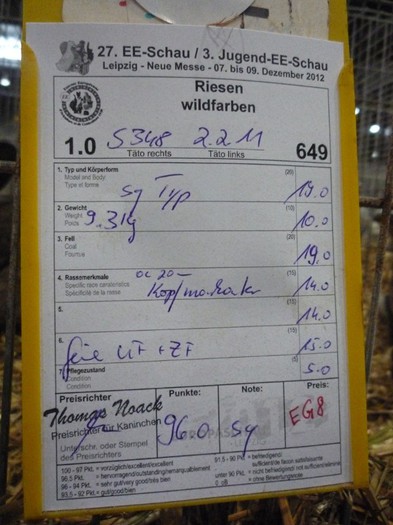 27. EE-Schau / 3. Jugend-EE-Schau
Leipzig - Neue Messe - 07. bis 09. Dezember 2012
Riesen
wildfarben
1.0 S348 2.2 M 649
Täto rechts Täto links
1. Typ und Körperform (20)
Model and Body
Type et forme
sg Typ 19.0
2. Gewicht (10)
Weight
Poids
9.3 kg 10.0
3. Fell (20)
Coat
Fourrure
19.0
4. Rassemerkmale (15)
Specific race
Spécificité de la race
14.0
5. (15)
14.0
6. (15)
UF + ZF 15.0
7. Pflegezustand (5)
Condition
Condition
5.0
Preisrichter Punkte: Note: Preis:
Thomas Noack
Preisrichter für Kaninchen
96.0 sg EG8
Unterschr. oder Stempel
des Preisrichters
100 - 97 Pkt. = vorzüglich/excellent/excellent
96.5 Pkt. = hervorragend/outstanding/remarquablement
96 - 94 Pkt. = sehr gut/very good/très bien
93.5 - 92 Pkt = gut/good/bien
91.5 - 90 Pkt. = befriedigend
unter 90 Pkt. = nicht befriedigend
o.B. = ohne Bewertung